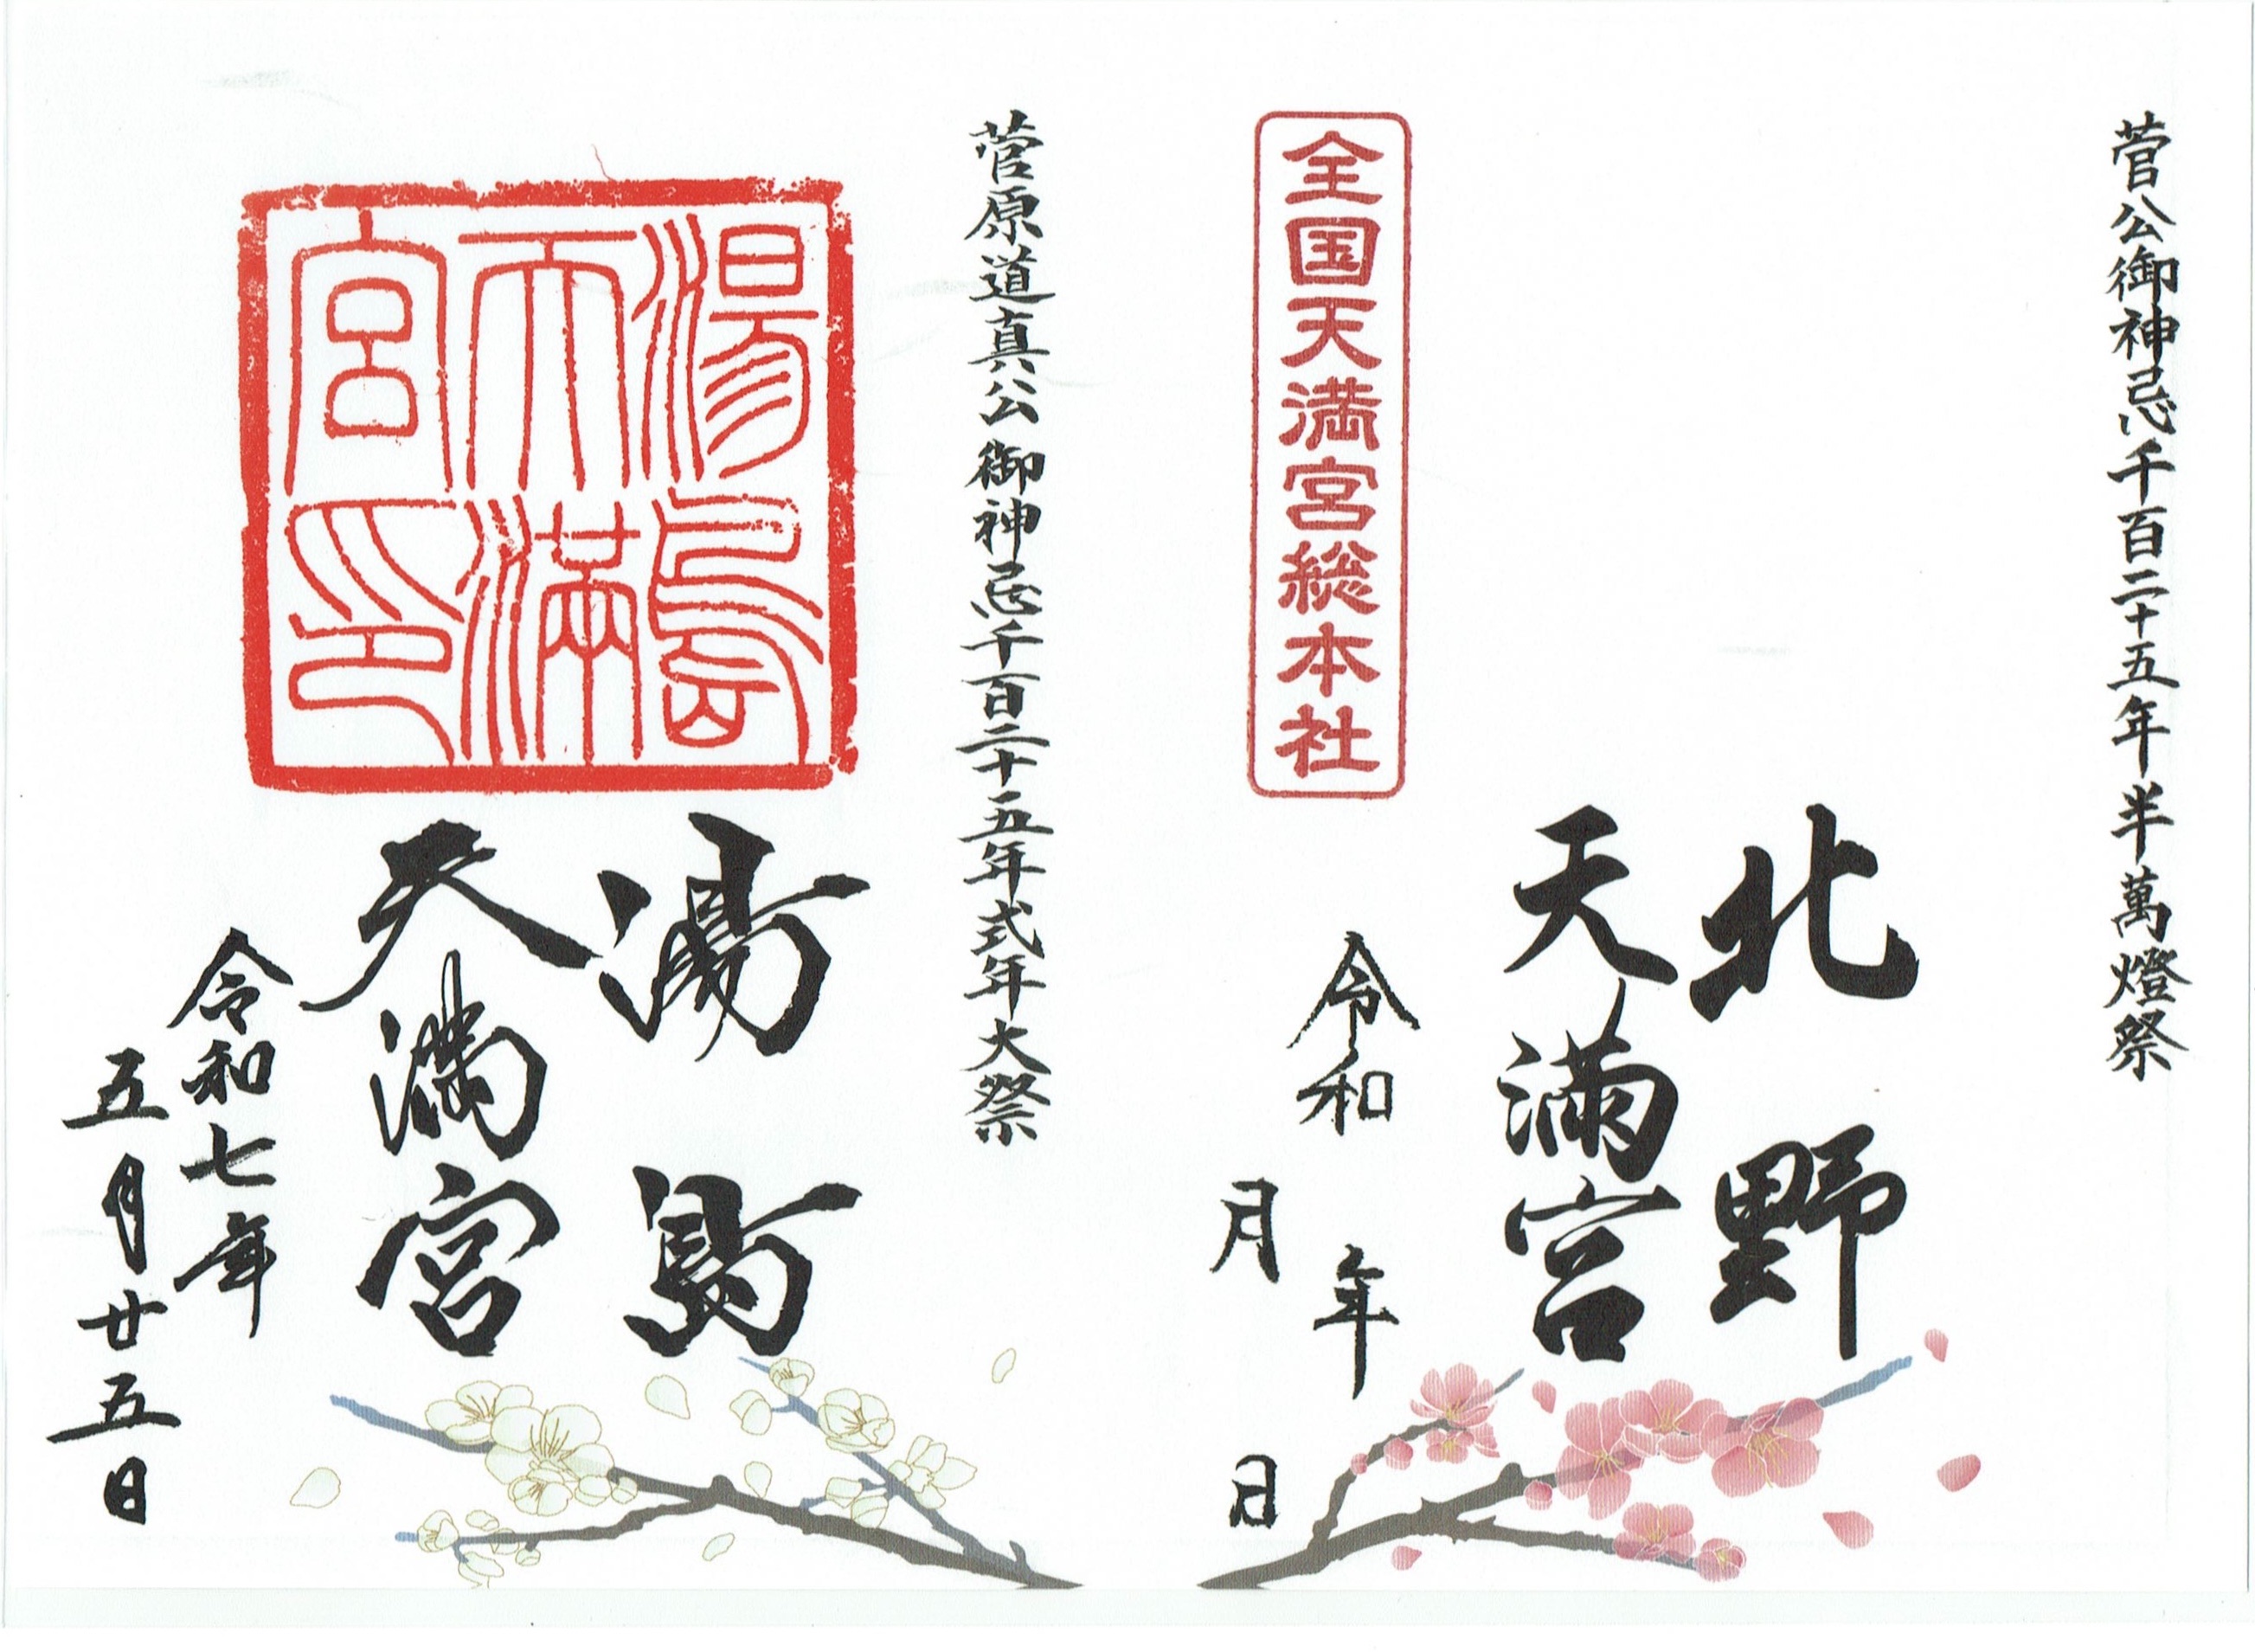 菅公御神忌千百二十五年半萬燈祭
北野
天満宮
全国天満宮総本社
令和 年
月 日
菅原道真公御神忌千百二十五年式年大祭
湯島
天満宮印
湯島
天満宮
令和七年
五月廿五日